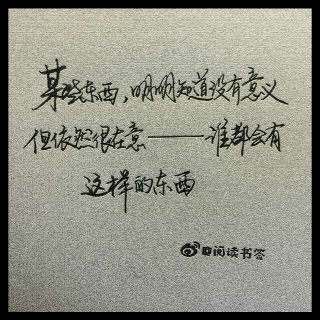 某些东西，明明知道没有意义
但依然很在意——谁都会有
这样的东西
@阅读书签